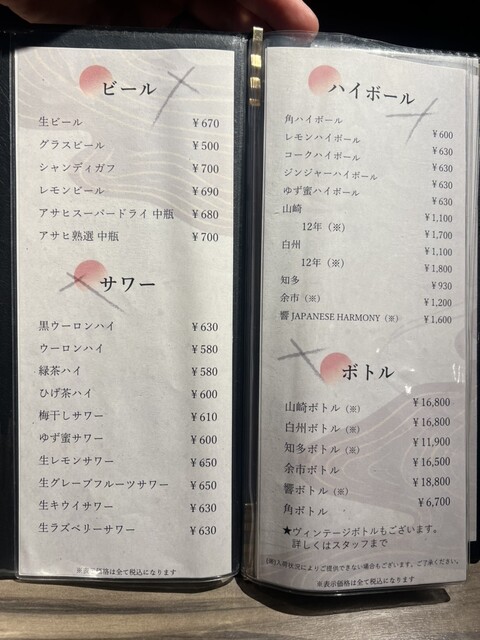 ビール
生ビール ¥670
グラスビール ¥500
シャンディガフ ¥700
レモンビール ¥690
アサヒスーパードライ 中瓶 ¥680
アサヒ熟選 中瓶 ¥700
サワー
黒ウーロンハイ ¥630
ウーロンハイ ¥580
緑茶ハイ ¥580
ひげ茶ハイ ¥600
梅干しサワー ¥610
ゆず蜜サワー ¥600
生レモンサワー ¥650
生グレープフルーツサワー ¥650
生キウイサワー ¥630
生ラズベリーサワー ¥630
※表示価格は全て税込になります
ハイボール
角ハイボール ¥600
レモンハイボール ¥630
コークハイボール ¥630
ジンジャーハイボール ¥630
ゆず蜜ハイボール ¥630
山崎 ¥1,100
12年（※） ¥1,700
白州 ¥1,100
12年（※） ¥1,800
知多 ¥930
余市（※） ¥1,200
響 JAPANESE HARMONY（※） ¥1,600
ボトル
山崎ボトル（※） ¥16,800
白州ボトル（※） ¥16,800
知多ボトル（※） ¥11,900
余市ボトル ¥16,500
響ボトル（※） ¥18,800
角ボトル ¥6,700
★ヴィンテージボトルもございます。
詳しくはスタッフまで
(※)入荷状況によりご提供できない場合もございます。ご了承ください。
※表示価格は全て税込になります